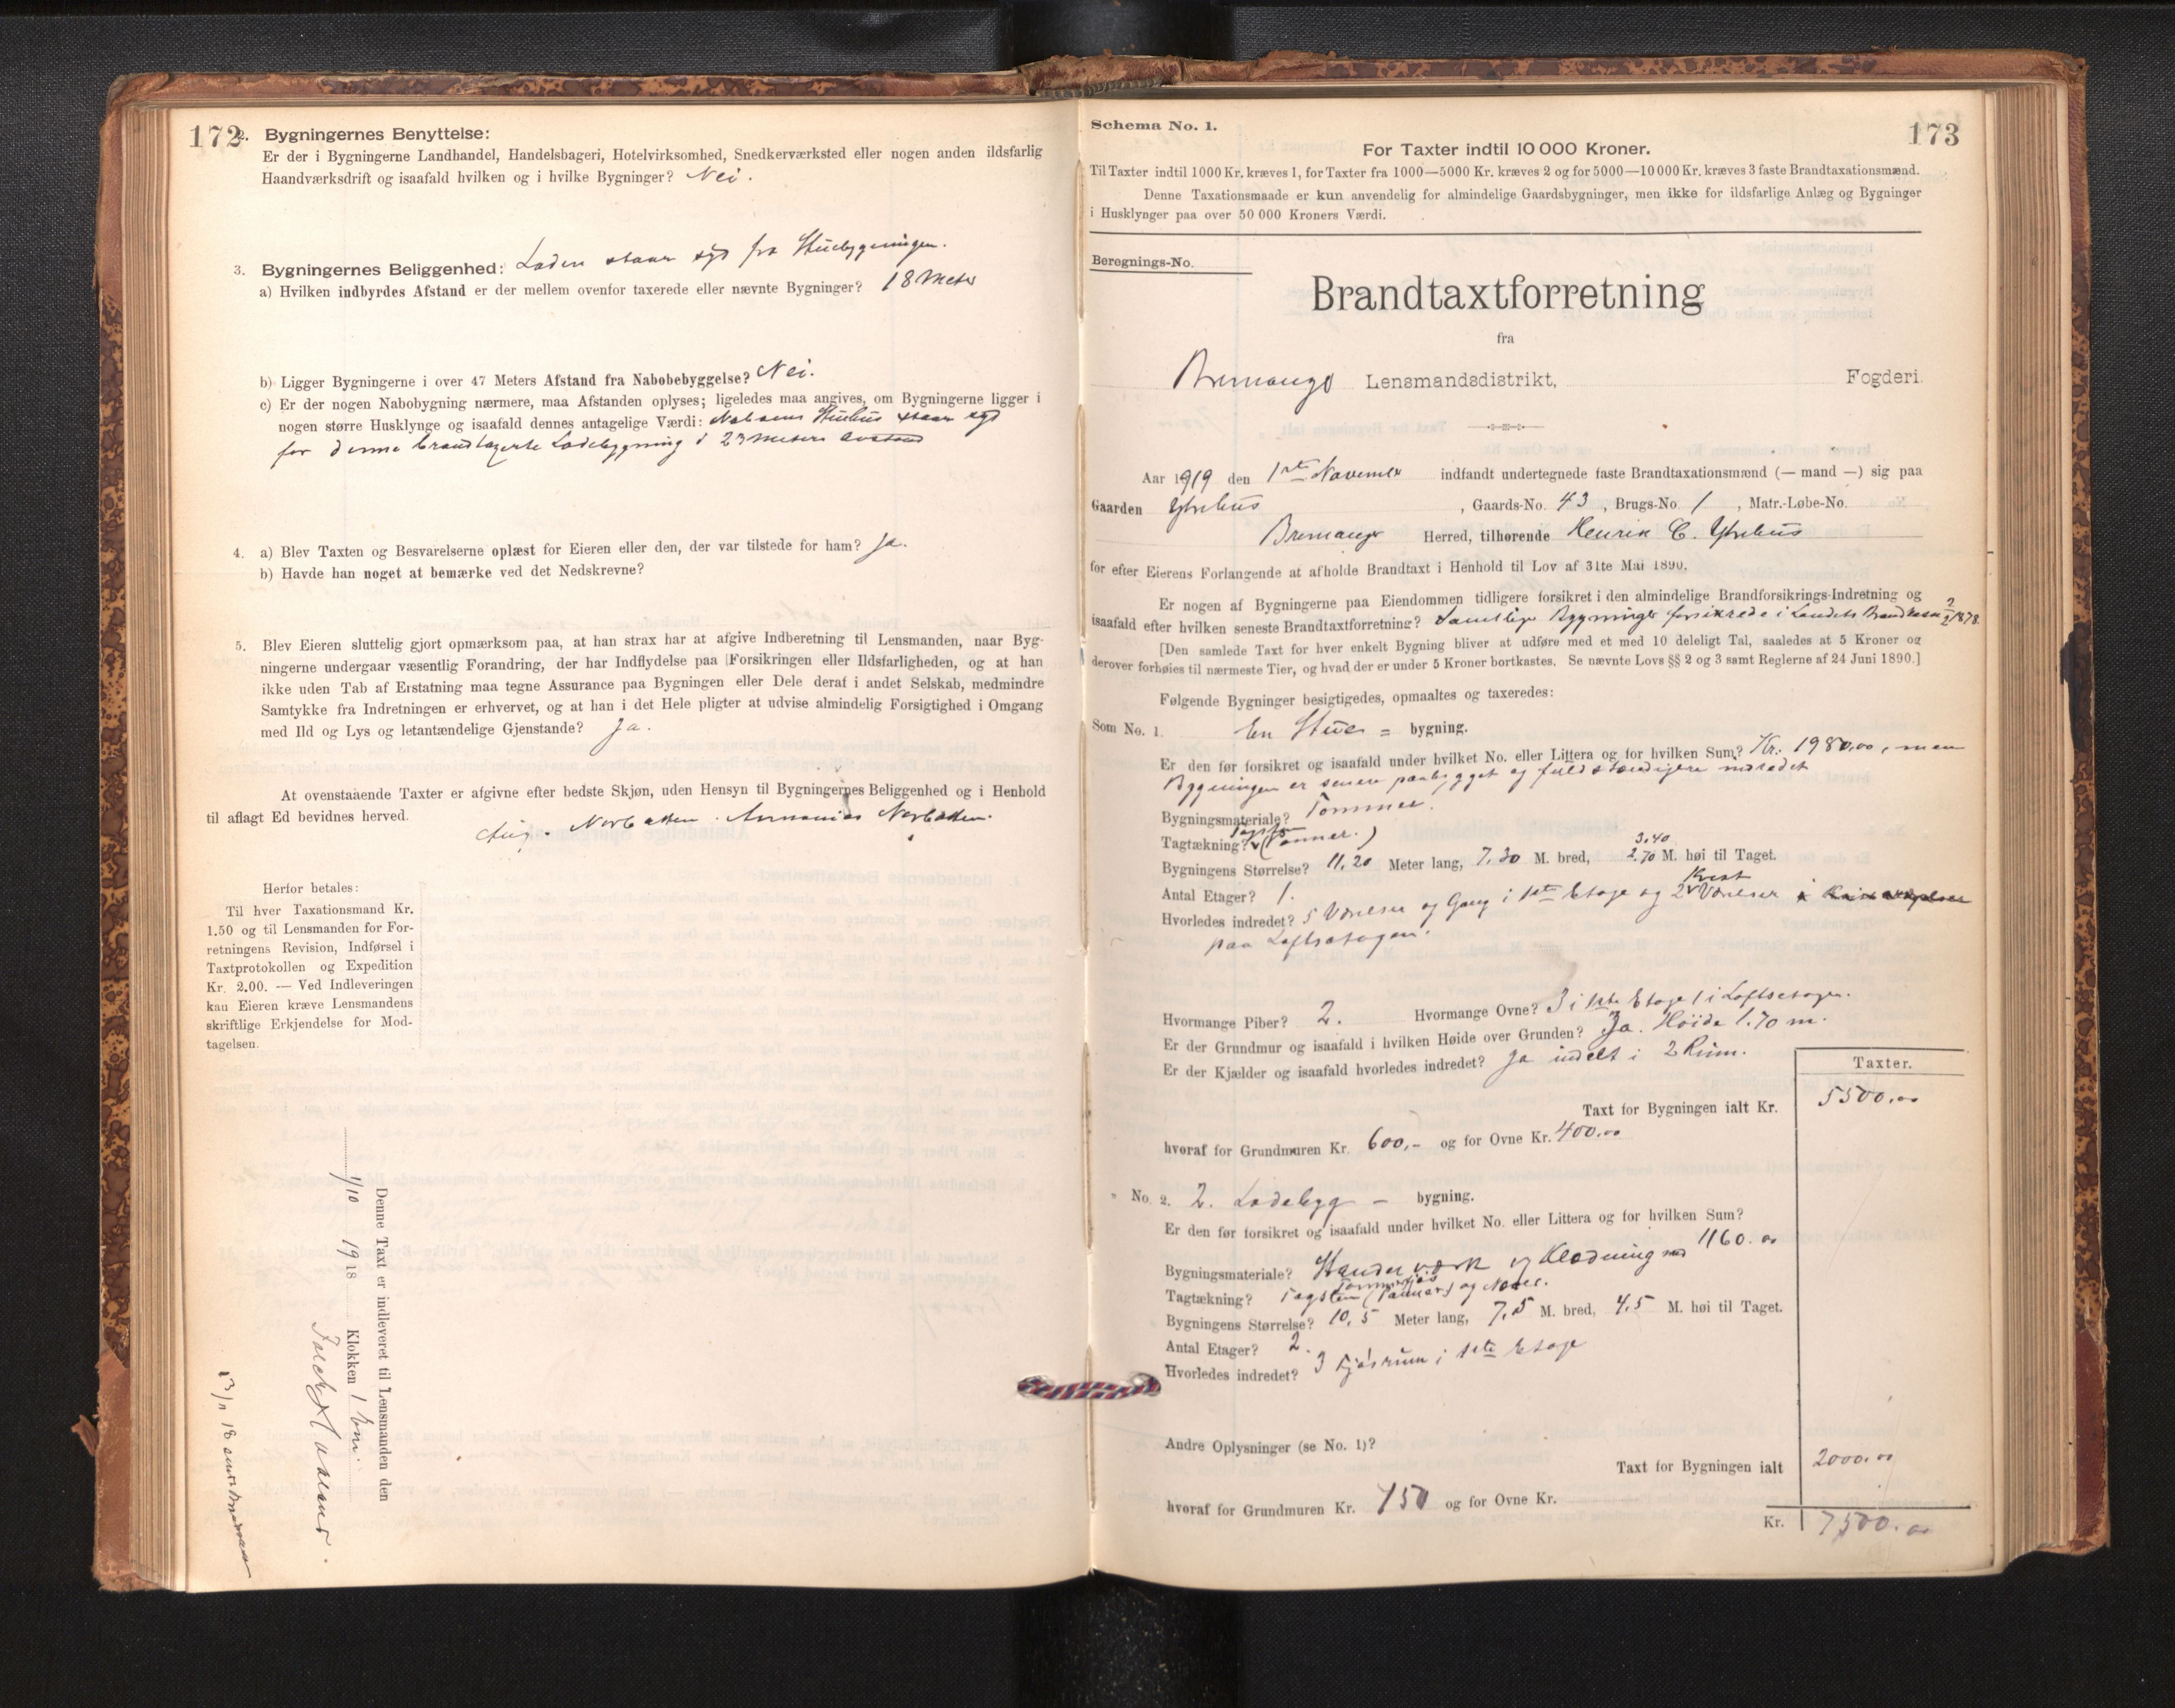 172
2. Bygningernes Benyttelse:
Er der i Bygningerne Landhandel, Handelsbageri, Hotelvirksomhed, Snedkerværksted eller nogen anden ildsfarlig
Haandværksdrift og isaafald hvilken og i hvilke Bygninger? Nei.
3. Bygningernes Beliggenhed: Laden staar syd fra Stuebygningen.
a) Hvilken indbyrdes Afstand er der mellem ovenfor taxerede eller nævnte Bygninger? 18 Meter
b) Ligger Bygningerne i over 47 Meters Afstand fra Nabobebyggelse? Nei.
c) Er der nogen Nabobygning nærmere, maa Afstanden oplyses; ligeledes maa angives, om Bygningerne ligger i
nogen større Husklynge og isaafald dennes antagelige Værdi: Naboens Stuehus staar syd
for denne brandtaxerte Ladebygning i 23 meters avstand
4. a) Blev Taxten og Besvarelserne oplæst for Eieren eller den, der var tilstede for ham? Ja.
b) Havde han noget at bemærke ved det Nedskrevne?
5. Blev Eieren sluttelig gjort opmærksom paa, at han strax har at afgive Indberetning til Lensmanden, naar Byg-
ningerne undergaar væsentlig Forandring, der har Indflydelse paa Forsikringen eller Ildsfarligheden, og at han
ikke uden Tab af Erstatning maa tegne Assurance paa Bygningen eller Dele deraf i andet Selskab, medmindre
Samtykke fra Indretningen er erhvervet, og at han i det Hele pligter at udvise almindelig Forsigtighed i Omgang
med Ild og Lys og letantændelige Gjenstande? Ja.
At ovenstaaende Taxter er afgivne efter bedste Skjøn, uden Hensyn til Bygningernes Beliggenhed og i Henhold
til aflagt Ed bevidnes herved.
Aug. Norbotten. Ananias Norbotten.
Herfor betales:
Til hver Taxationsmand Kr.
1.50 og til Lensmanden for For-
retningens Revision, Indførsel i
Taxtprotokollen og Expedition
Kr. 2.00. — Ved Indleveringen
kan Eieren kræve Lensmandens
skriftlige Erkjendelse for Mod-
tagelsen.
Denne Taxt er indleveret til Lensmanden den
1/10 1918 Klokken 1 Emi.
13/11 18
173
Schema No. 1.
For Taxter indtil 10 000 Kroner.
Til Taxter indtil 1000 Kr. kræves 1, for Taxter fra 1000—5000 Kr. kræves 2 og for 5000—10 000 Kr. kræves 3 faste Brandtaxationsmænd.
Denne Taxationsmaade er kun anvendelig for almindelige Gaardsbygninger, men ikke for ildsfarlige Anlæg og Bygninger
i Husklynger paa over 50 000 Kroners Værdi.
Beregnings-No.
Brandtaxtforretning
fra
Bremanger Lensmandsdistrikt, Fogderi.
Aar 1919 den 1ste November indfandt undertegnede faste Brandtaxationsmænd (— mand —) sig paa
Gaarden Ytrehus, Gaards-No. 43, Brugs-No. 1, Matr.-Løbe-No.
Bremanger Herred, tilhørende Henrik C. Ytrehus
for efter Eierens Forlangende at afholde Brandtaxt i Henhold til Lov af 31te Mai 1890.
Er nogen af Bygningerne paa Eiendommen tidligere forsikret i den almindelige Brandforsikrings-Indretning og
isaafald efter hvilken seneste Brandtaxtforretning? Samtlige Bygninger forsikrede i Landets Brandkasse 2/2 1878.
[Den samlede Taxt for hver enkelt Bygning bliver at udføre med et med 10 deleligt Tal, saaledes at 5 Kroner og
derover forhøies til nærmeste Tier, og hvad der er under 5 Kroner bortkastes. Se nævnte Lovs §§ 2 og 3 samt Reglerne af 24 Juni 1890.]
Følgende Bygninger besigtigedes, opmaaltes og taxeredes:
Som No. 1. En Stue = bygning.
Er den før forsikret og isaafald under hvilket No. eller Littera og for hvilken Sum? Kr. 1980.00, men
Bygningen er senere paabygget og fuldstændigere indredet
Bygningsmateriale? Tømmer.
Tagtækning? Tagsten (Panner.)
Bygningens Størrelse? 11,20 Meter lang, 7,30 M. bred, 3,40 2.70 M. høi til Taget.
Antal Etager? 1.
Hvorledes indredet? 5 Værelser og Gang i 1ste Etage og 2 Kvist Værelser
paa Loftsetagen.
Hvormange Piber? 2. Hvormange Ovne? 3 i 1ste Etage 1 i Loftsetagen.
Er der Grundmur og isaafald i hvilken Høide over Grunden? Ja. Høide 1.70 m.
Er der Kjælder og isaafald hvorledes indredet? Ja indelt i 2 Rum.
Taxter.
Taxt for Bygningen ialt Kr. 5500.00
hvoraf for Grundmuren Kr. 600,- og for Ovne Kr. 400.00
" No. 2. 2. Ladebyg - bygning.
Er den før forsikret og isaafald under hvilket No. eller Littera og for hvilken Sum?
1160.00
Bygningsmateriale? Stenderværk og Klædning med
Tømmerfjøs
Tagtækning? Tagsten (Panner) og Never.
Bygningens Størrelse? 10,5 Meter lang, 7,5 M. bred, 4,5 M. høi til Taget.
Antal Etager? 2.
Hvorledes indredet? 3 Fjøsrum i 1ste Etage
Andre Oplysninger (se No. 1)?
Taxt for Bygningen ialt 2000.00
hvoraf for Grundmuren Kr. 150 og for Ovne Kr.
Kr. 7500.00